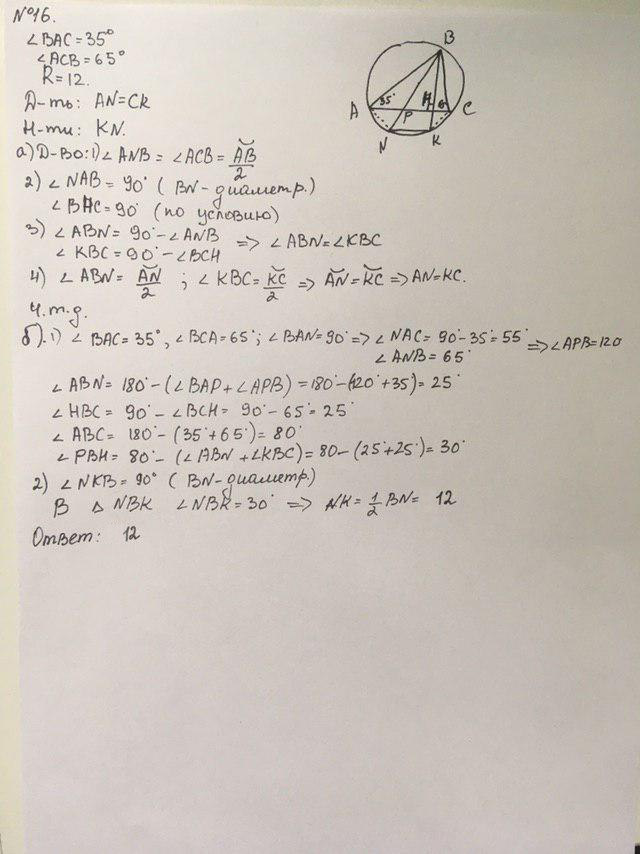 №16.
∠BAC = 35°
∠ACB = 65°
R = 12.
Д-ть: AN = CK
Н-ти: KN.
а) Д-во: 1) ∠ANB = ∠ACB = ◡AB/2
2) ∠NAB = 90° (BN - диаметр.)
∠BHC = 90° (по условию)
3) ∠ABN = 90° - ∠ANB
∠KBC = 90° - ∠BCH => ∠ABN = ∠KBC
4) ∠ABN = ◡AN/2 ; ∠KBC = ◡KC/2 => ◡AN = ◡KC => AN = KC.
Ч.т.д.
б). 1) ∠BAC = 35°, ∠BCA = 65°; ∠BAN = 90° => ∠NAC = 90° - 35° = 55° => ∠APB = 120
∠ANB = 65°
∠ABN = 180° - (∠BAP + ∠APB) = 180° - (120° + 35) = 25°
∠HBC = 90° - ∠BCH = 90° - 65° = 25°
∠ABC = 180° - (35° + 65°) = 80°
∠PBH = 80° - (∠ABN + ∠KBC) = 80 - (25° + 25°) = 30°
2) ∠NKB = 90° (BN - диаметр.)
В △NBK ∠NBK = 30° => NK = 1/2 BN = 12
Ответ: 12
B
A
35°
H
65
C
P
N
K